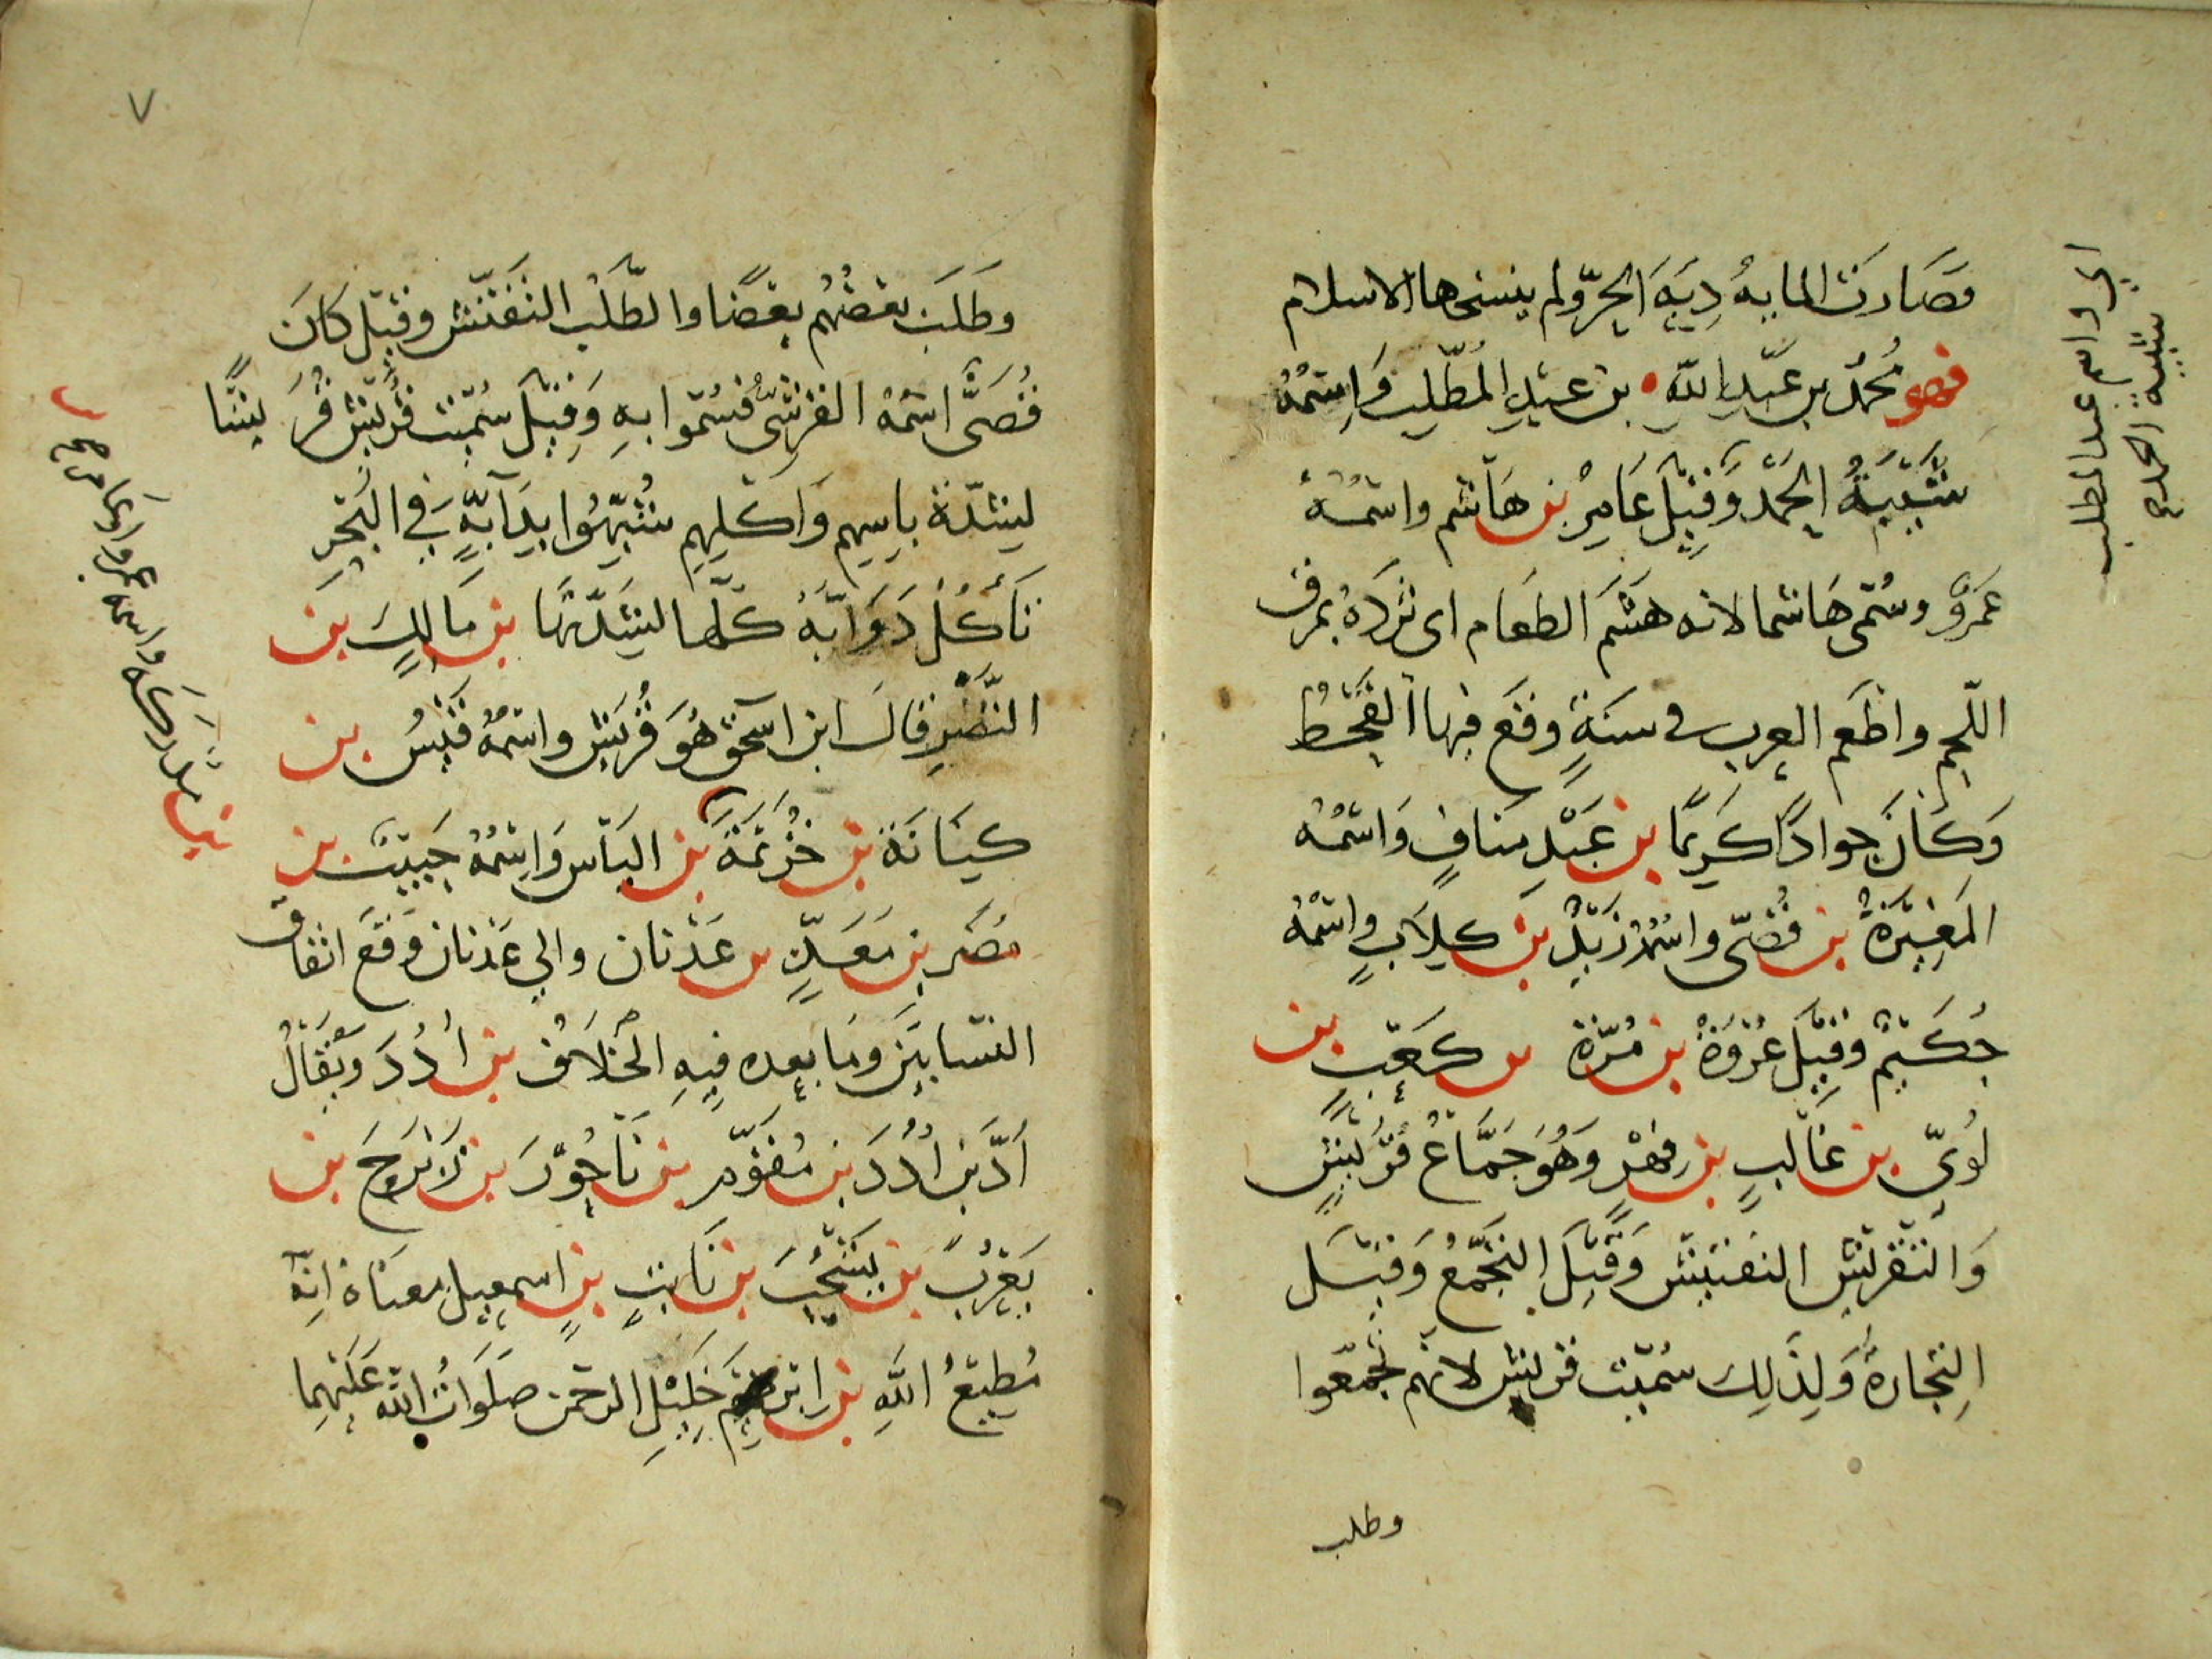 فصَارت المايهُ دِيَةَ الحرّ ولم ينسخها الاسلام
فهو محمّد بن عَبدِ اللّهِ بن عبدِ المُطّلِبِ وَاِسمُهُ
شَيْبَةُ الحَمْدِ وَقِيْلَ عَامِرُ بن هَاشم واسْمُهُ
عَمرٌو وسُمّى هَاشما لانه هَشَمَ الطعَام اى ثَرَدَهُ بمرق
اللّحم واطعَم العرب فى سنةٍ وقعَ فيها القَحْطُ
وَكَانَ جوادًا كَرِيمًا بن عَبْدِ مَنَافٍ وَاسْمُهُ
المُغِيْرَةُ بن قُصَىّ واسْمُهُ زَيْدُ بن كِلابٍ واسْمُهُ
حُكَيْمٌ وَقِيْلَ عُرْوَةُ بن مُرّة بن كَعْبِ بن
لُوىّ بن غَالبِ بن فِهْرٍ وَهُوَ جَمَّاعُ قُرَيْشٍ
وَالتّقْرِيْش التفتيش وَقِيْلَ التّجَمّعُ وَقِيْلَ
التِجَارةُ وَلِذَلِكَ سُمّيت قريش لانهم تجمّعوا
وطلب
اى واسم عبد المطلب
شيبة الحمد
٧
وطَلَبَ بعضُهُم بعضًا والطّلَب التفتّش وقِيْل كَانَ
قُصَىّ اسْمُهُ القرشىّ فسُمّوا بهِ وَقِيْلَ سُمّيت قُرَيْش قُرَيْشًا
لِشِدّة باسِهِم وَاكْلِهِم شُبّهُوا بِدَآبّةٍ فِى البَحْرِ
تَأكُلُ دَوَابَّهُ كلّها لِشِدّتها بن مَالِكِ بن
النَّضْرِ قالَ ابن اسحق هُوَ قُرَيْش واسْمُهُ قَيْسُ بن
كِنَانَة بن خُزَيْمَةَ بن اليَأس وَاسْمُهُ حَبِيْبُ بن
بن مدركه واسمه عمرو او عامر صح
مُضَر بن مَعَدِّ بن عَدْنان والى عَدْنان وَقَعَ اتفاق
النسّابينَ وما بعده فيهِ الخِلافُ بن أُدُدَ ويُقالُ
أدّ بن أُدُدَ بن مُقَوّم بن نَاحُوْرَ بن تَارَحَ بن
يَعْرُبَ بن يَشْجُبَ بن نَابت بن اسمعيل معناهُ انّهُ
مُطِيْعُ اللّهِ بن ابرهيم خَلِيْلِ الرحمن صلَوَاتُ اللّه عَلَيْهِما